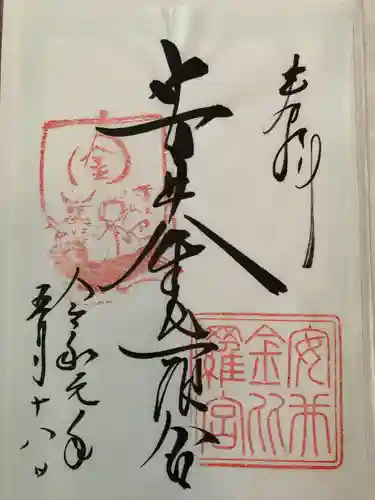 奉拝
安井金比羅宮
令和元年
五月十八日
金
安井
金比
羅宮